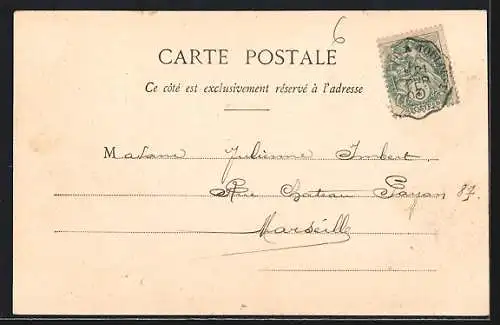 6
CARTE POSTALE
Ce côté est exclusivement réservé à l'adresse
Madame Julienne Imbert
Rue Chateau Payan 87.
Marséille